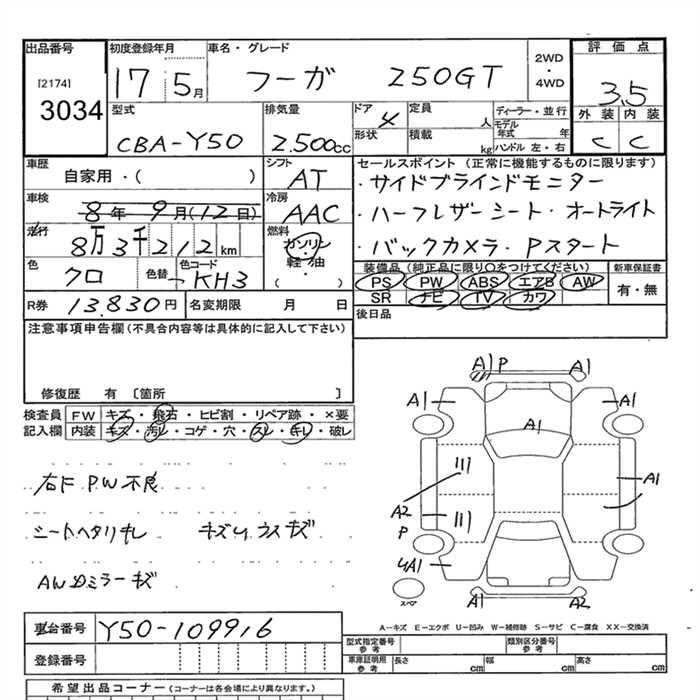 出品番号 初度登録年月 車名・グレード 2WD・4WD 評価点
[2174] 3034 17 5月 フーガ 250GT 3.5
外装 内装
C C
型式 排気量 ドア 定員 人 ディーラー・並行
CBA-Y50 2.500cc 4 形状 積載 kg モデル年式 年 ハンドル 左・右
車歴 シフト セールスポイント (正常に機能するものに限ります)
自家用・( ) AT ・サイドブラインドモニター
車検 冷房 ・ハーフレザーシート・オートライト
8年 9月(12日) AAC ・バックカメラ・Pスタート
走行 燃料
8万3千212km ガソリン・軽油 ( )
色 色替 色コード 装備品 (純正品に限り○をつけてください) 新車保証書
クロ → KH3 PS PW ABS エアB AW 有・無
R券 13.830円 名変期限 月 日 SR ナビ TV カワ
注意事項申告欄 (不具合内容等は具体的に記入して下さい) 後日品
修復歴 有 〔箇所 〕
検査員記入欄 FW キズ・飛石・ヒビ割・リペア跡・×要
内装 キズ・汚レ・コゲ・穴・スレ・キレ・破レ
右F PW不良
シートヘタリキレ キズU ウスキズ
AWDミラーキズ
A1 P A1
A1 A1
A1
A1
A2
P
4A1
スペア A1 A2
A-キズ E-エクボ U-凹み W-補修跡 S-サビ C-腐食 XX-交換済
車台番号 Y50-109916
登録番号
型式指定番号 参考 類別区分番号 参考
車庫証明用 参考 長さ cm 幅 cm 高さ cm
希望出品コーナー (コーナーは各会場により異なります。)